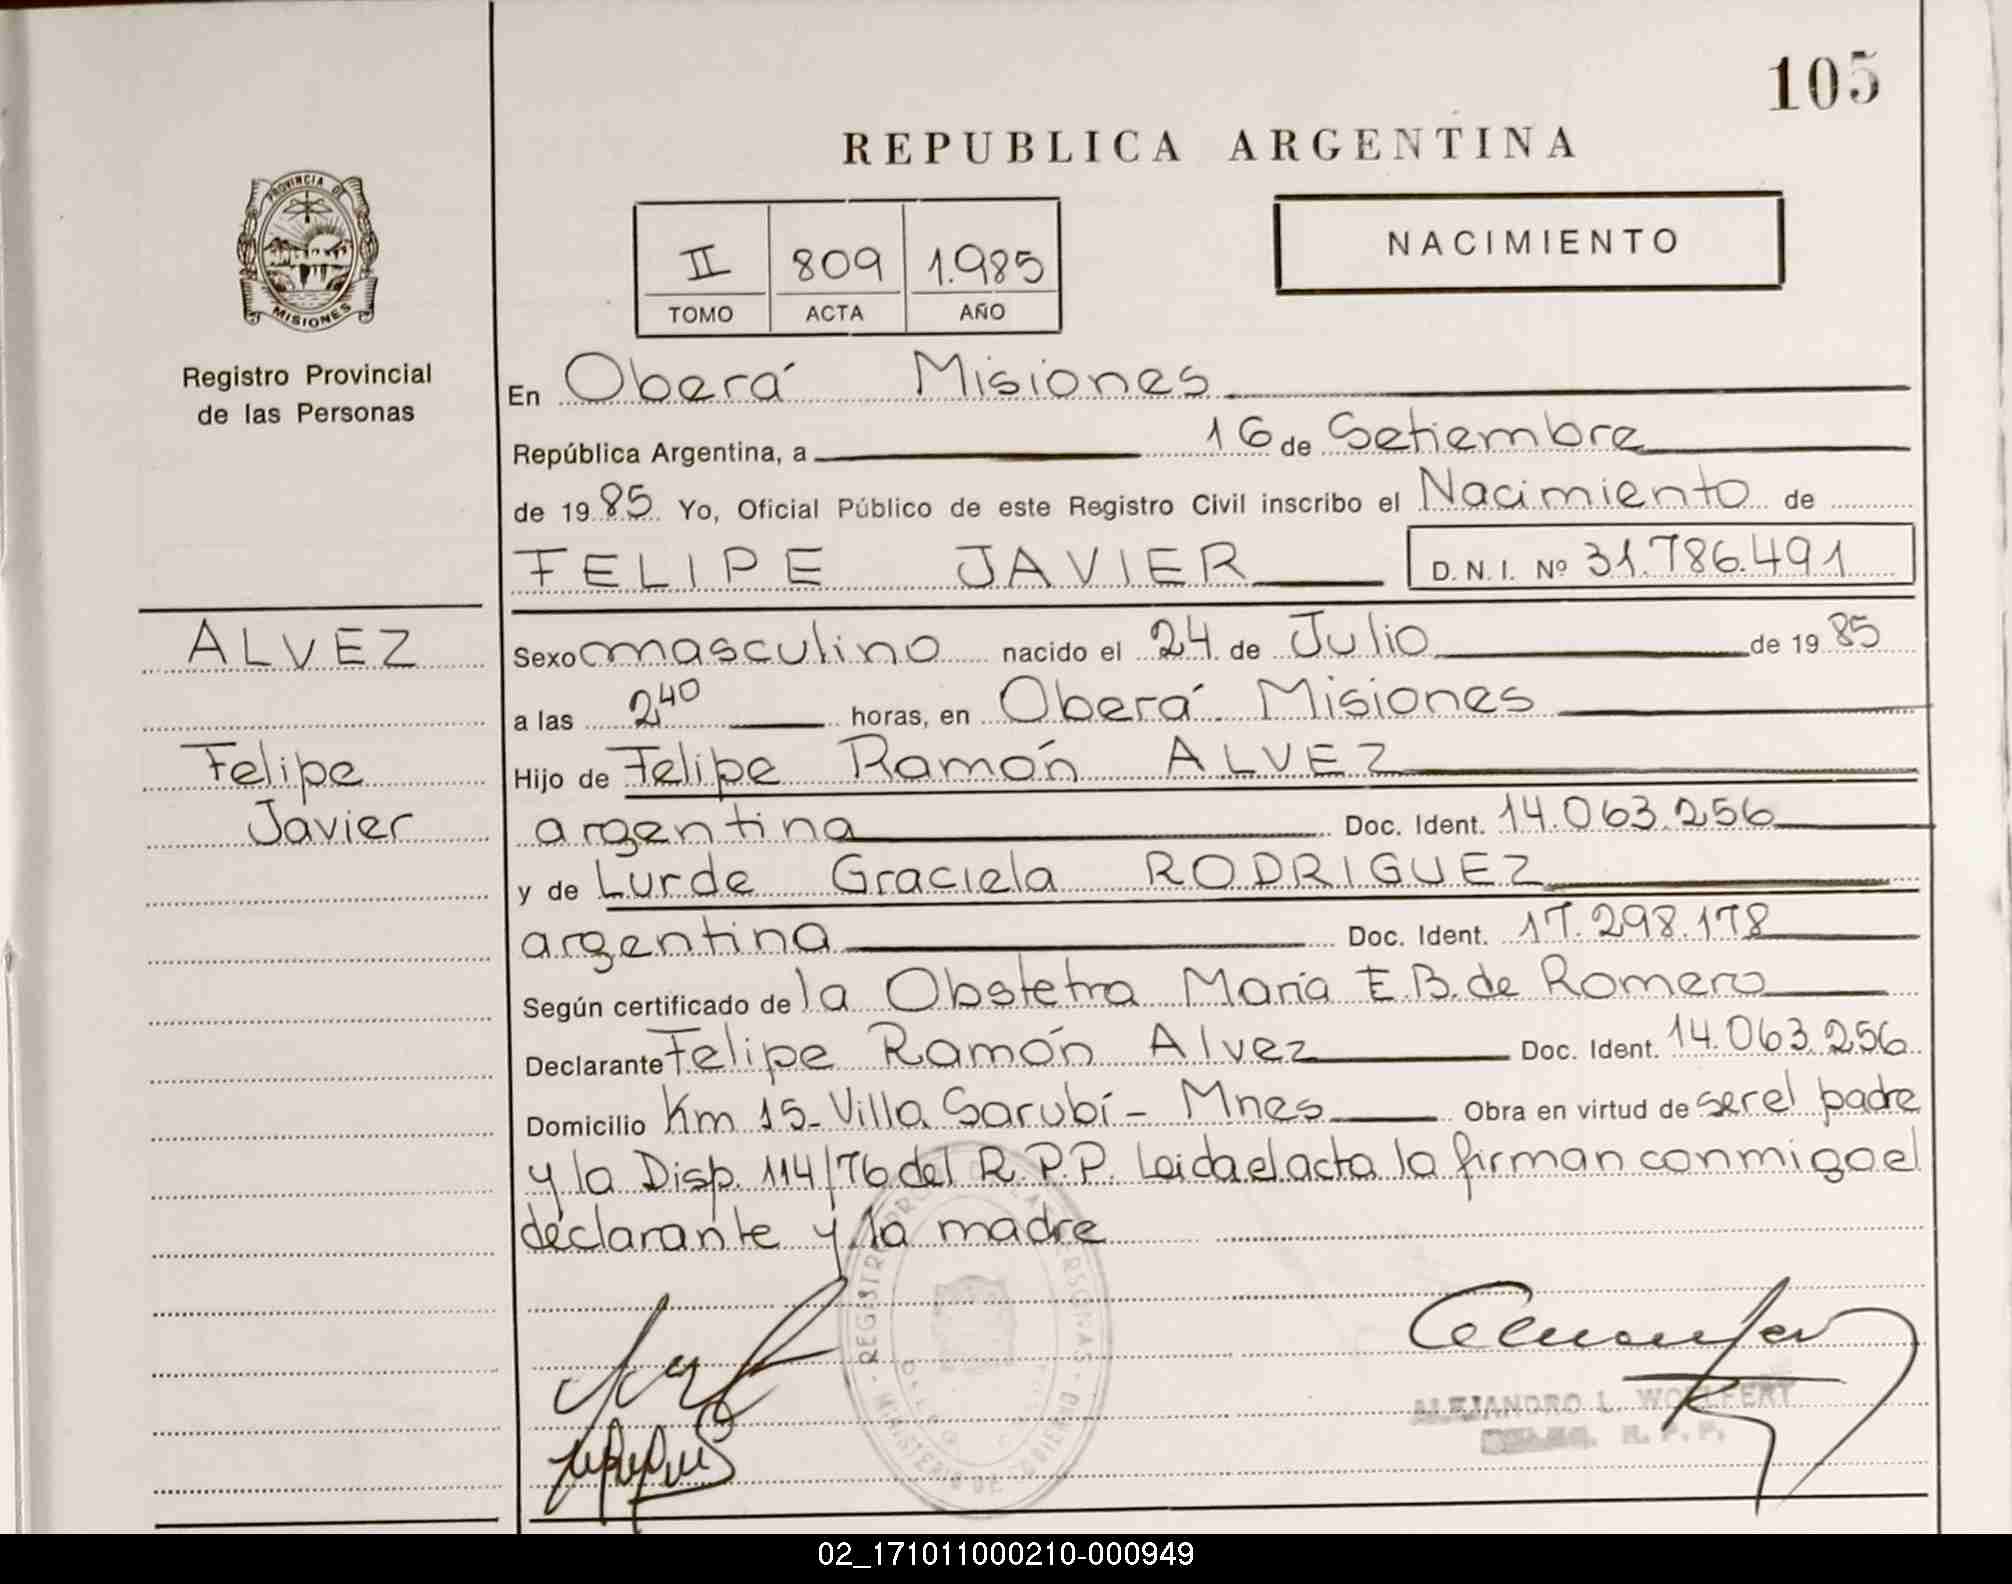 105
REPUBLICA ARGENTINA
PROVINCIA DE
MISIONES
II 809 1.985
TOMO ACTA AÑO
NACIMIENTO
Registro Provincial
de las Personas
En Oberá Misiones
República Argentina, a 16 de Setiembre
de 1985 Yo, Oficial Público de este Registro Civil inscribo el Nacimiento de
FELIPE JAVIER D.N.I. Nº 31.786.491
ALVEZ
Felipe
Javier
Sexo masculino nacido el 24 de Julio de 1985
a las 2,40 horas, en Oberá Misiones
Hijo de Felipe Ramón ALVEZ
argentina Doc. Ident. 14.063.256
y de Lurde Graciela RODRIGUEZ
argentina Doc. Ident. 17.298.178
Según certificado de la Obstetra María E.B. de Romero
Declarante Felipe Ramón Alvez Doc. Ident. 14.063.256
Domicilio Km 15- Villa Sarubí - Mnes Obra en virtud de ser el padre
y la Disp. 114/76 del R.P.P. Leida el acta la firman conmigo el
declarante y la madre
ALEJANDRO L. WOLFERT
R. P. P.
02_171011000210-000949